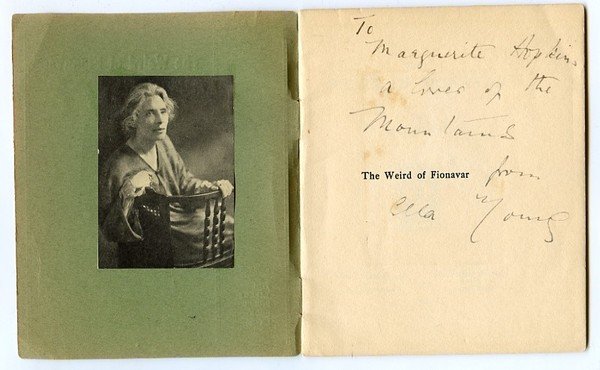 To
Marguerite Hopkins
a lover of the
Mountains
from
The Weird of Fionavar
Ella Young